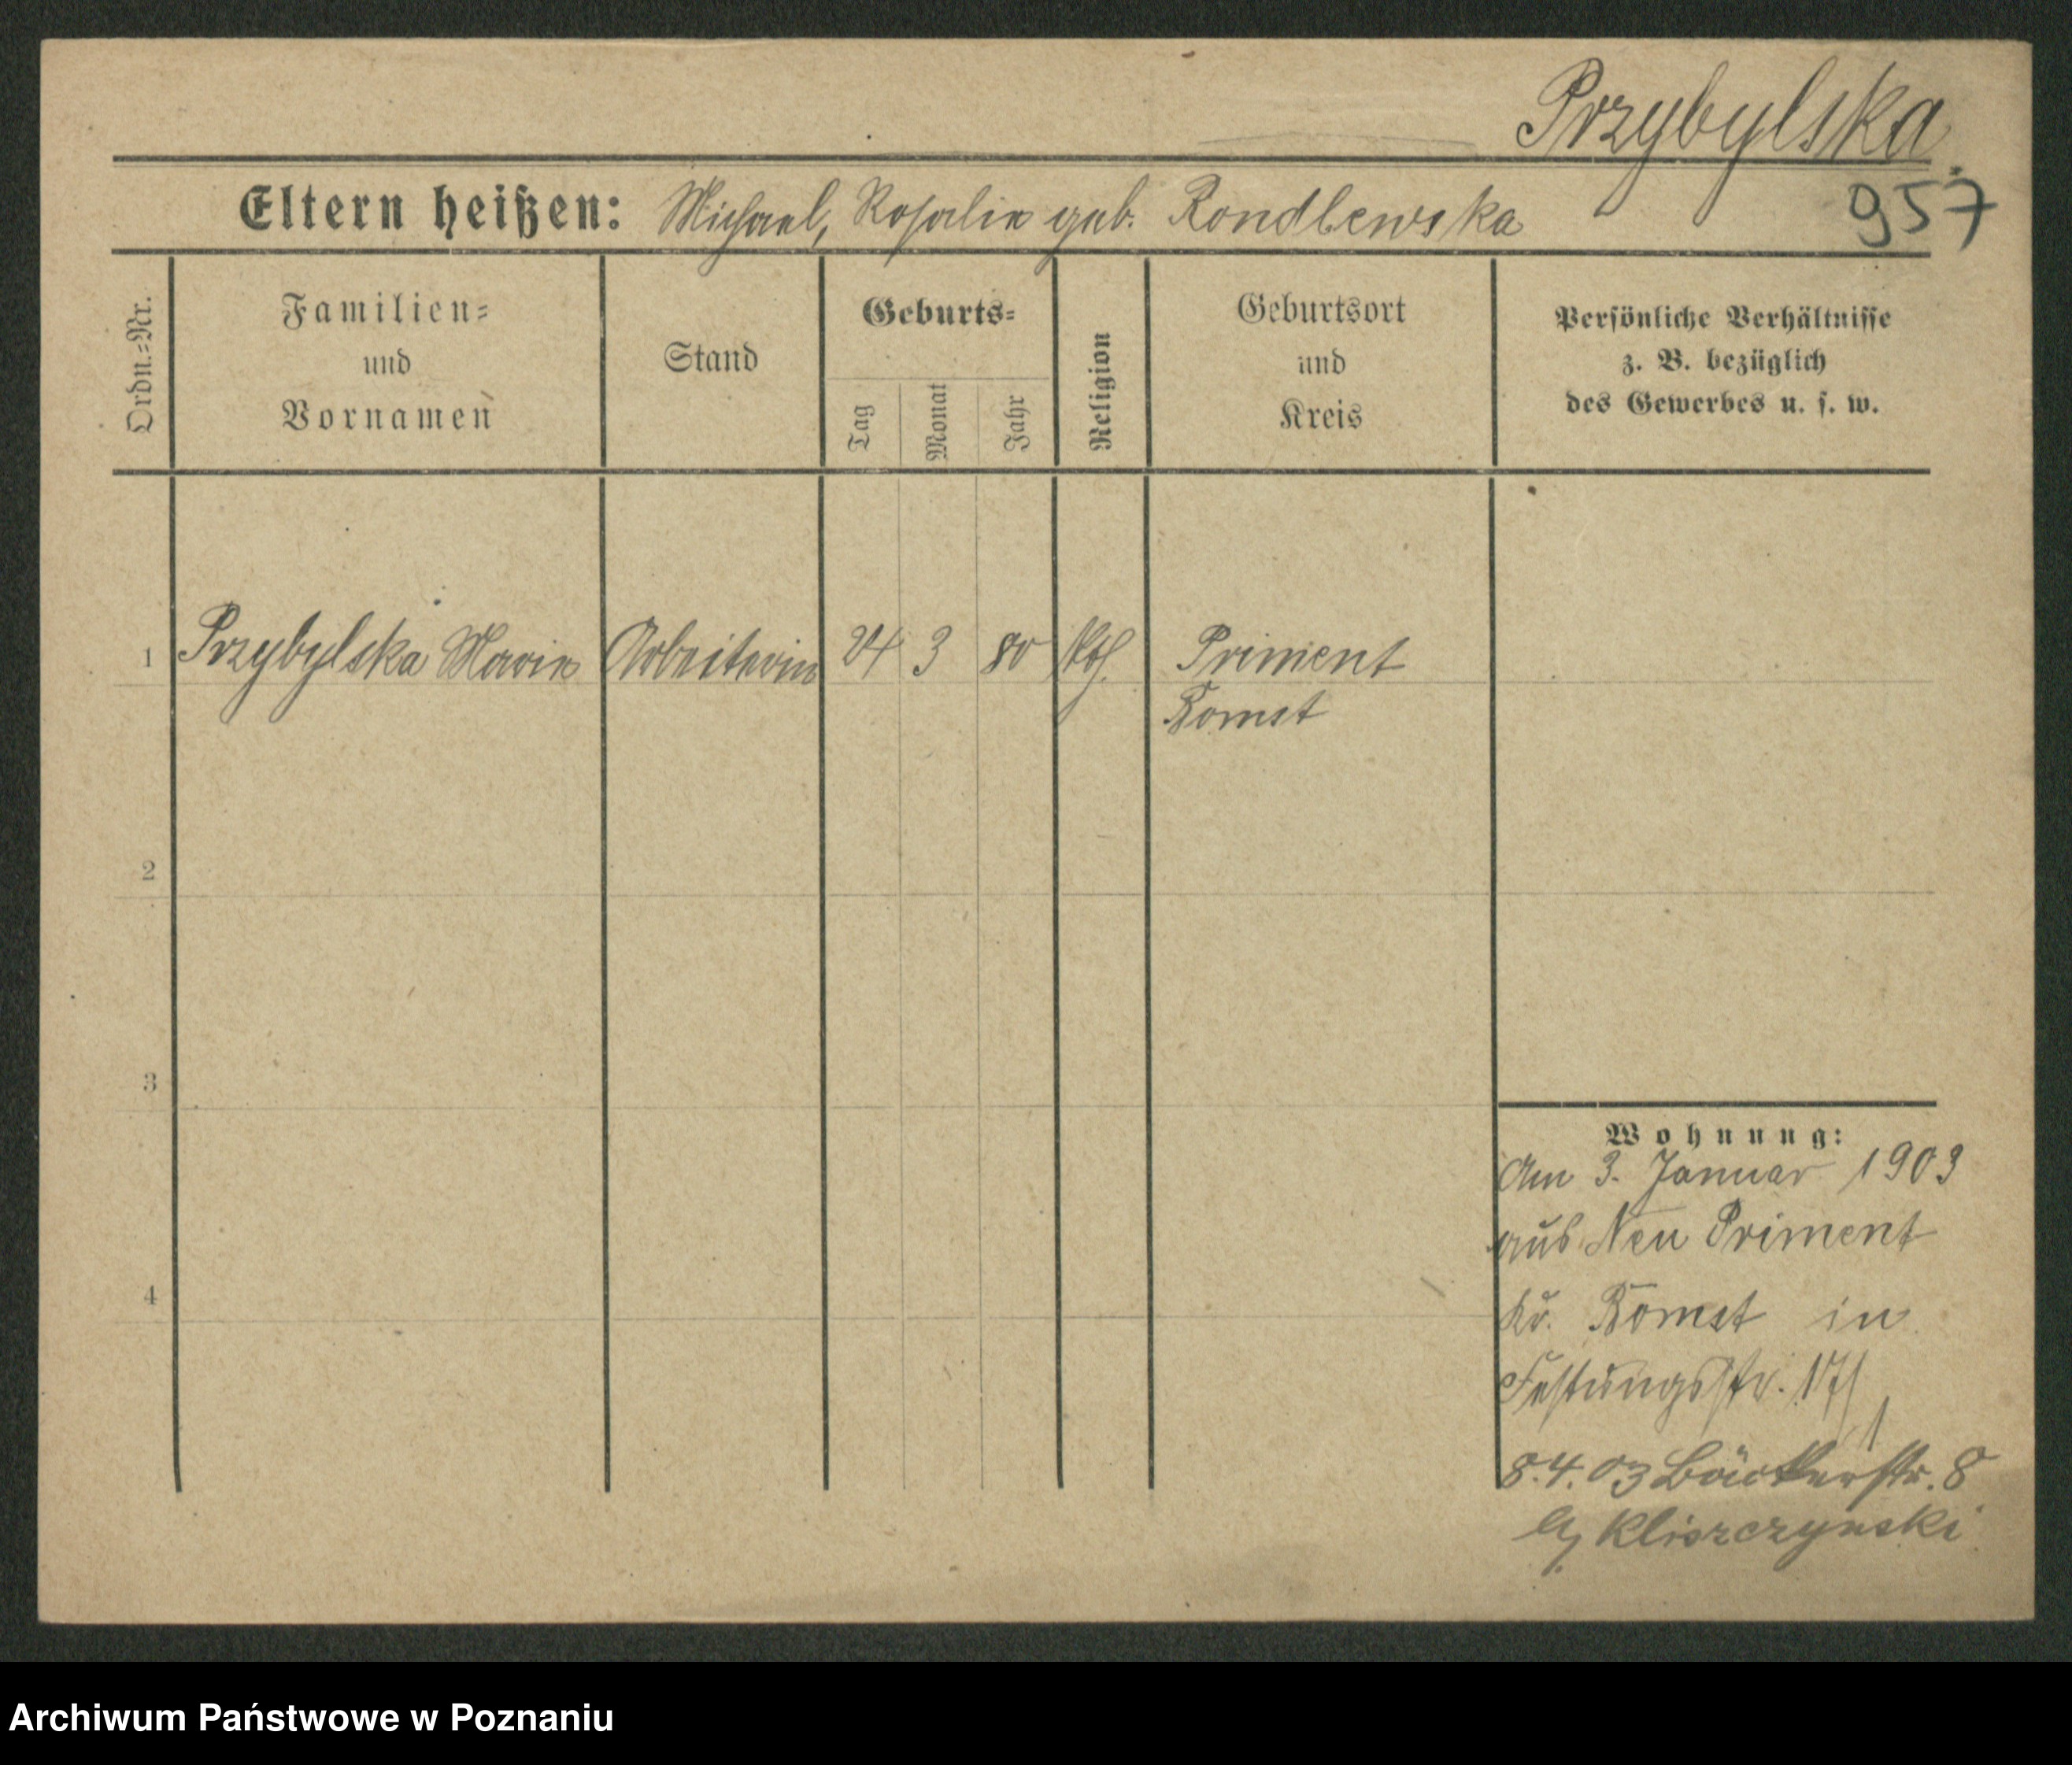 Przybylska.
957
Eltern heißen: Michael, Rosalie geb. Rondlewska
Ordn.=Nr.
Familien=
und
Vornamen
Stand
Geburts=
Tag
Monat
Jahr
Religion
Geburtsort
und
Kreis
Persönliche Verhältnisse
z. B. bezüglich
des Gewerbes u. s. w.
1 Przybylska Marie Arbeiterin 24 3 80 kth. Priment
Bomst
2
3
4
Wohnung:
Am 3. Januar 1903
aus Neu Priment
Kr. Bomst in
Festungsstr. 17/
8.4.03 Bäckerstr. 8
b/ Kliszczynski
Archiwum Państwowe w Poznaniu